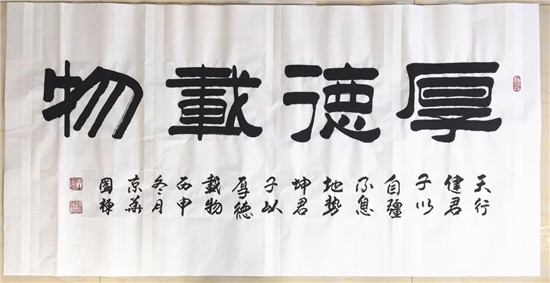 厚德載物
天行
健君
子以
自疆
不息
地势
坤君
子以
厚德
載物
丙申
冬月
京華
國